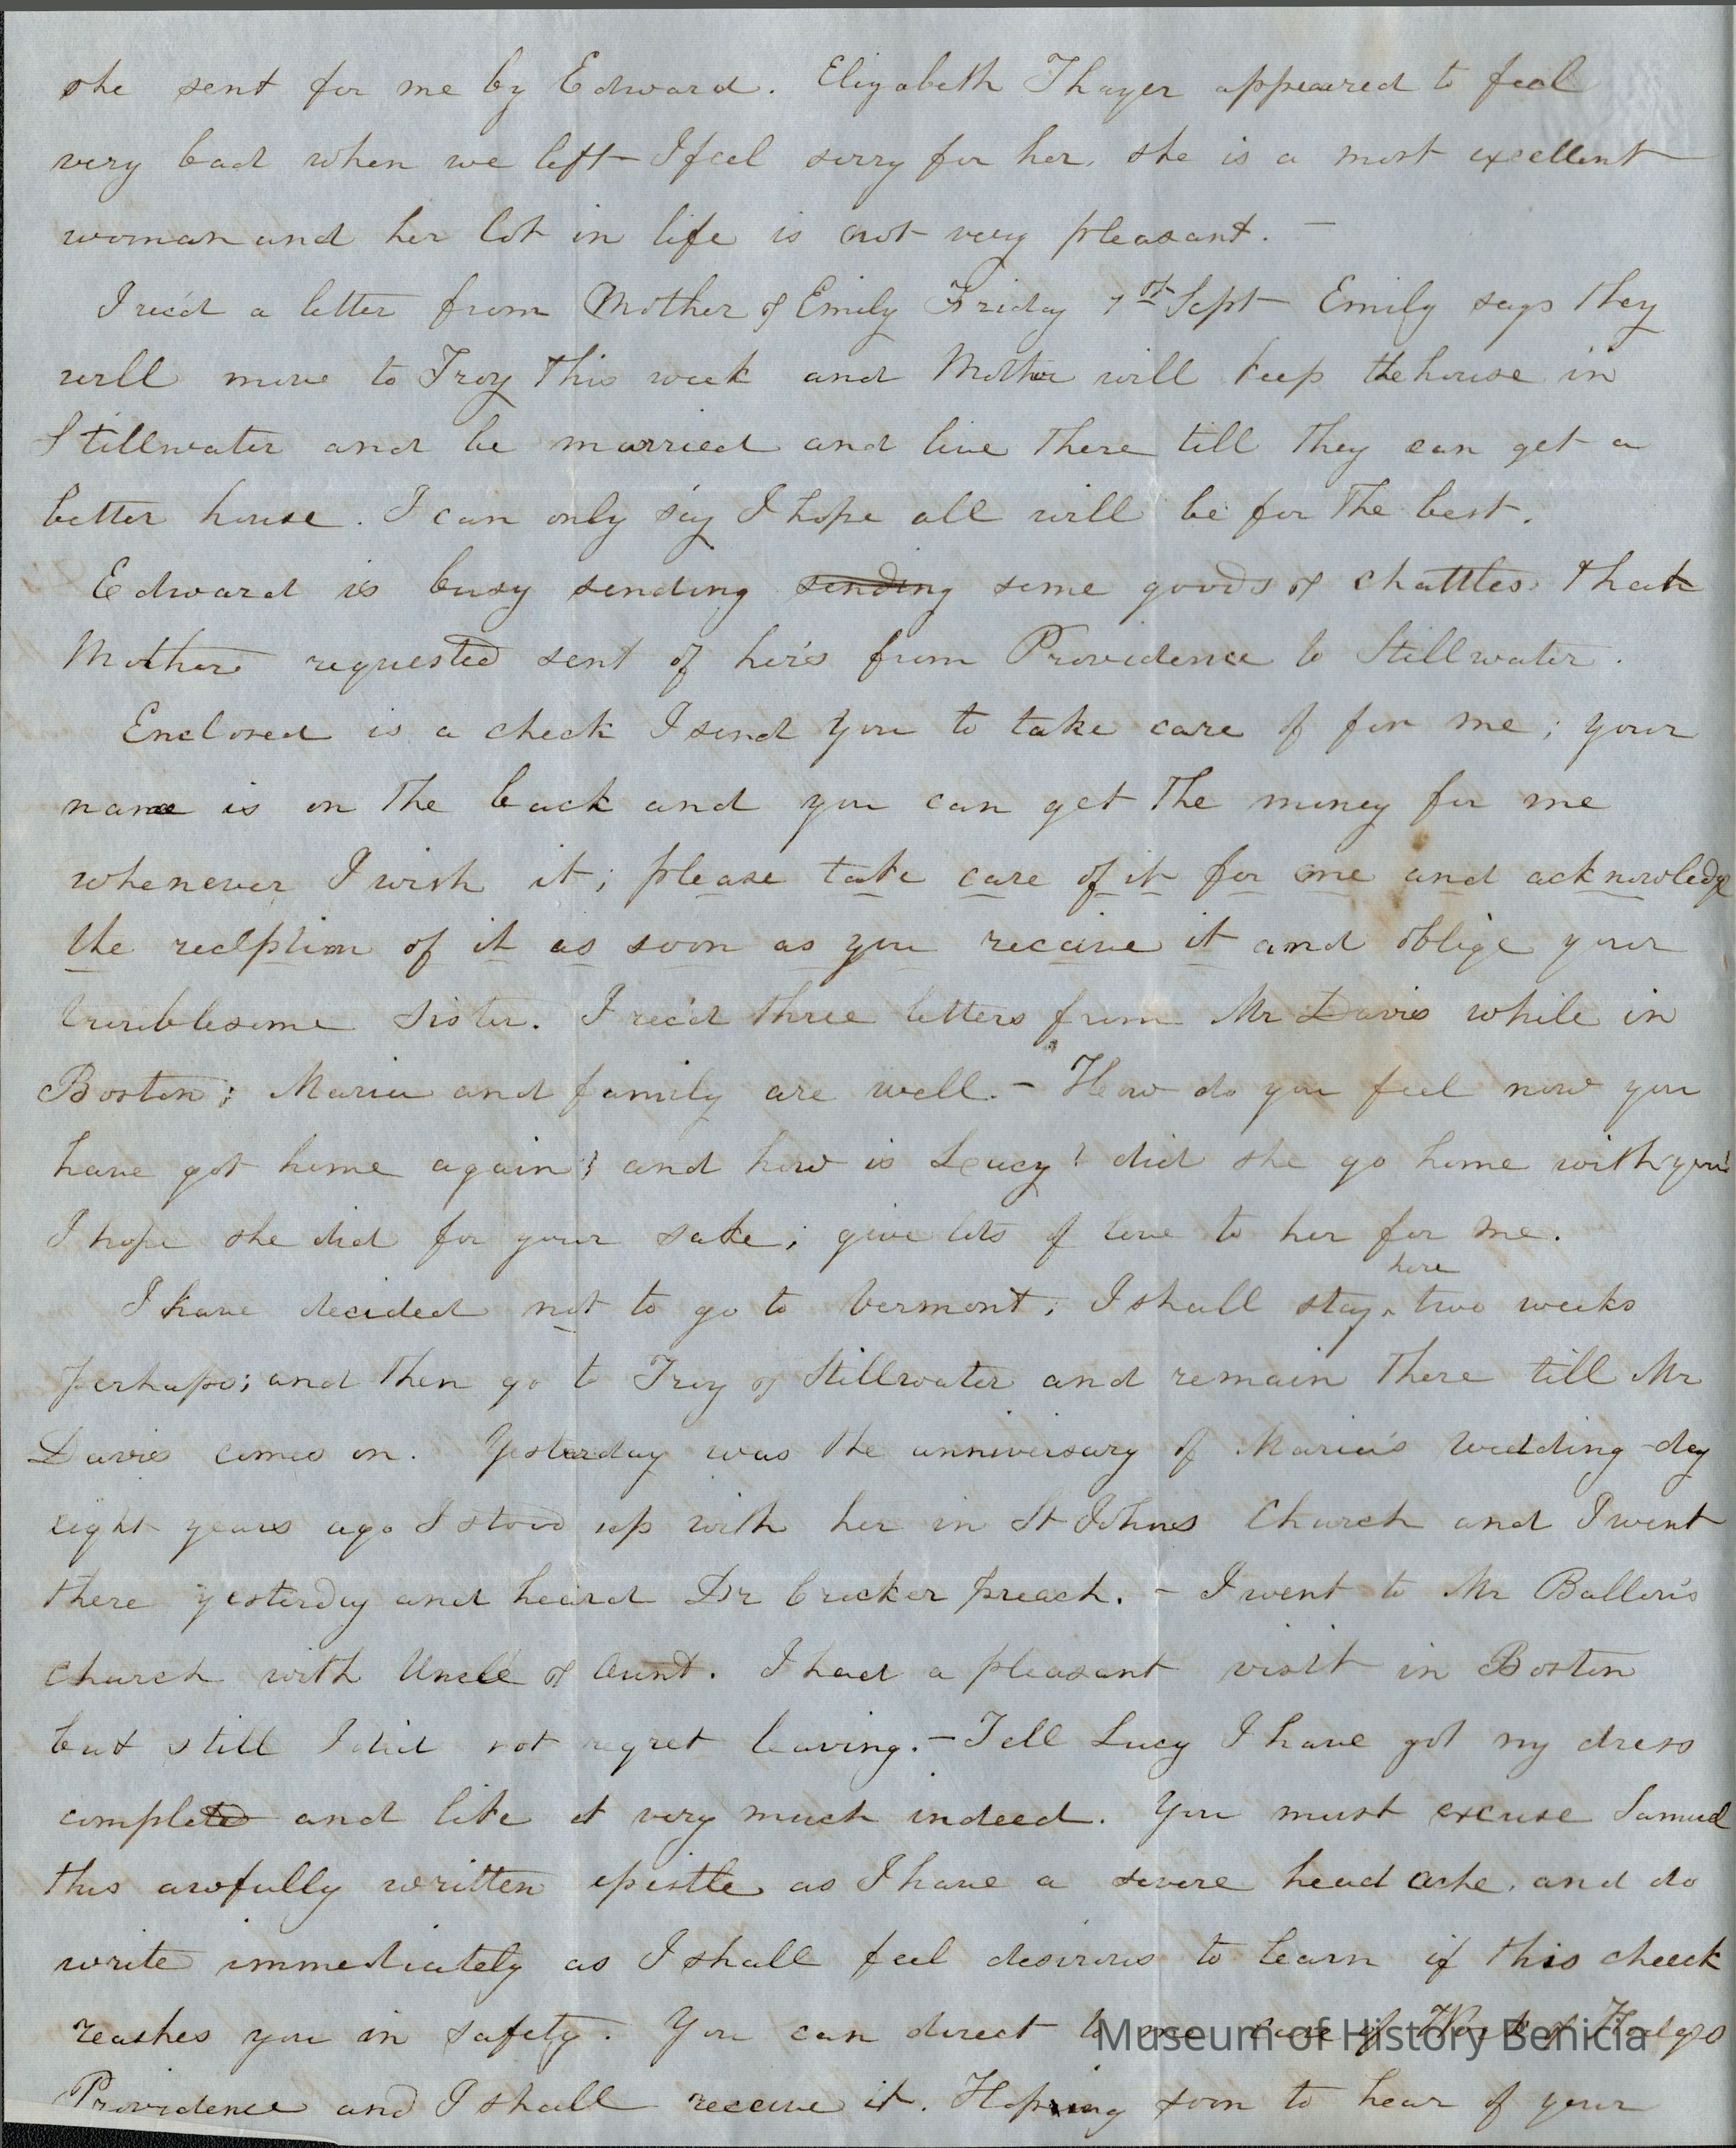 she sent for me by Edward. Elizabeth Thayer appeared to feel
very bad when we left - I feel sorry for her, she is a most excellent
woman and her lot in life is not very pleasant. -
I rec'd a letter from Mother & Emily Friday 1st Sept - Emily says they
will move to Troy this week and Mother will keep the house in
Stillwater and be married and live there till they can get a
better house. I can only say I hope all will be for the best.
Edward is busy sending sending some goods & chattles that
Mother requested sent of her's from Providence to Stillwater.
Enclosed is a check I send you to take care of for me; your
name is on the back and you can get the money for me
whenever I wish it; please take care of it for me and acknowledge
the reception of it as soon as you receive it and oblige your
troublesome sister. I rec'd three letters from Mr Davis while in
Boston; Maria and family are well. - How do you feel now you
have got home again? and how is Lucy? did she go home with you?
I hope she did for your sake; give lots of love to her for me.
I have decided not to go to Vermont; I shall stay here two weeks
perhaps; and then go to Troy & Stillwater and remain there till Mr
Davis comes on. Yesterday was the anniversary of Maria's wedding-day
eight years ago I stood up with her in St Johns Church and I went
there yesterday and heard Dr Crocker preach. - I went to Mr Ballou's
church with Uncle & Aunt. I had a pleasant visit in Boston
but still I did not regret leaving. - Tell Lucy I have got my dress
completed and like it very much indeed. You must excuse Samuel
this awfully written epistle as I have a severe head ache, and do
write immediately as I shall feel desirous to learn if this check
reaches you in safety. You can direct to me care of &
Providence and I shall receive it. Hoping soon to hear of your
Museum of History Benicia